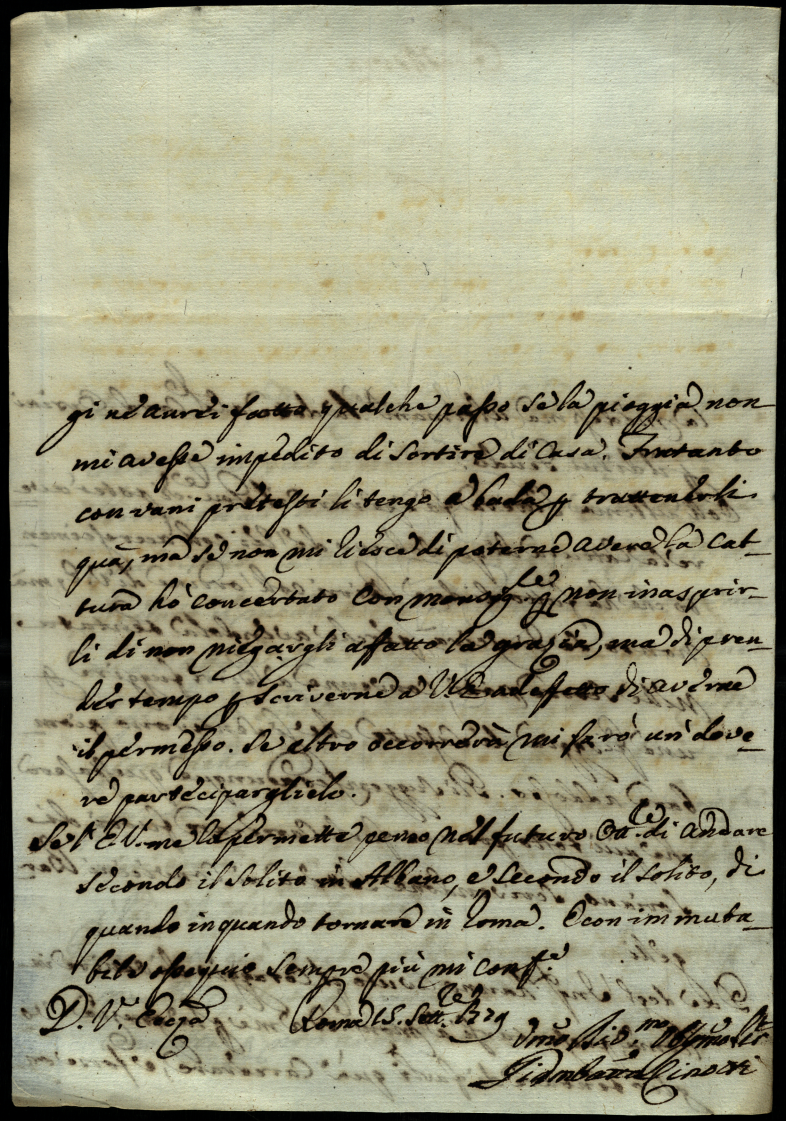 gi ne aurei fatto qualche passo se la pioggia non
mi avesse impedito di sortire di Casa. Frattanto
con vani pretesti li tengo à bada p trattenerli
quà, mà se non mi riesce di poterne avere la Cat-
tura hò concertato con Monsig.re p non inasprir-
li di non niegargli affatto la grazia, mà di pren-
der tempo p scriverne à V.E. ad effetto di averne
il permesso. Se altro occorrerà mi farò un dove-
re parteciparglielo.
Se l'E.V. me lo permette penso nel futuro 8bre di andare
secondo il solito in Albano, e secondo il solito, di
quando in quando tornare in Roma. E con immuta-
bile ossequio sempre più mi conf.o
D. V. Ecc̃a
Roma 15. Sett.re